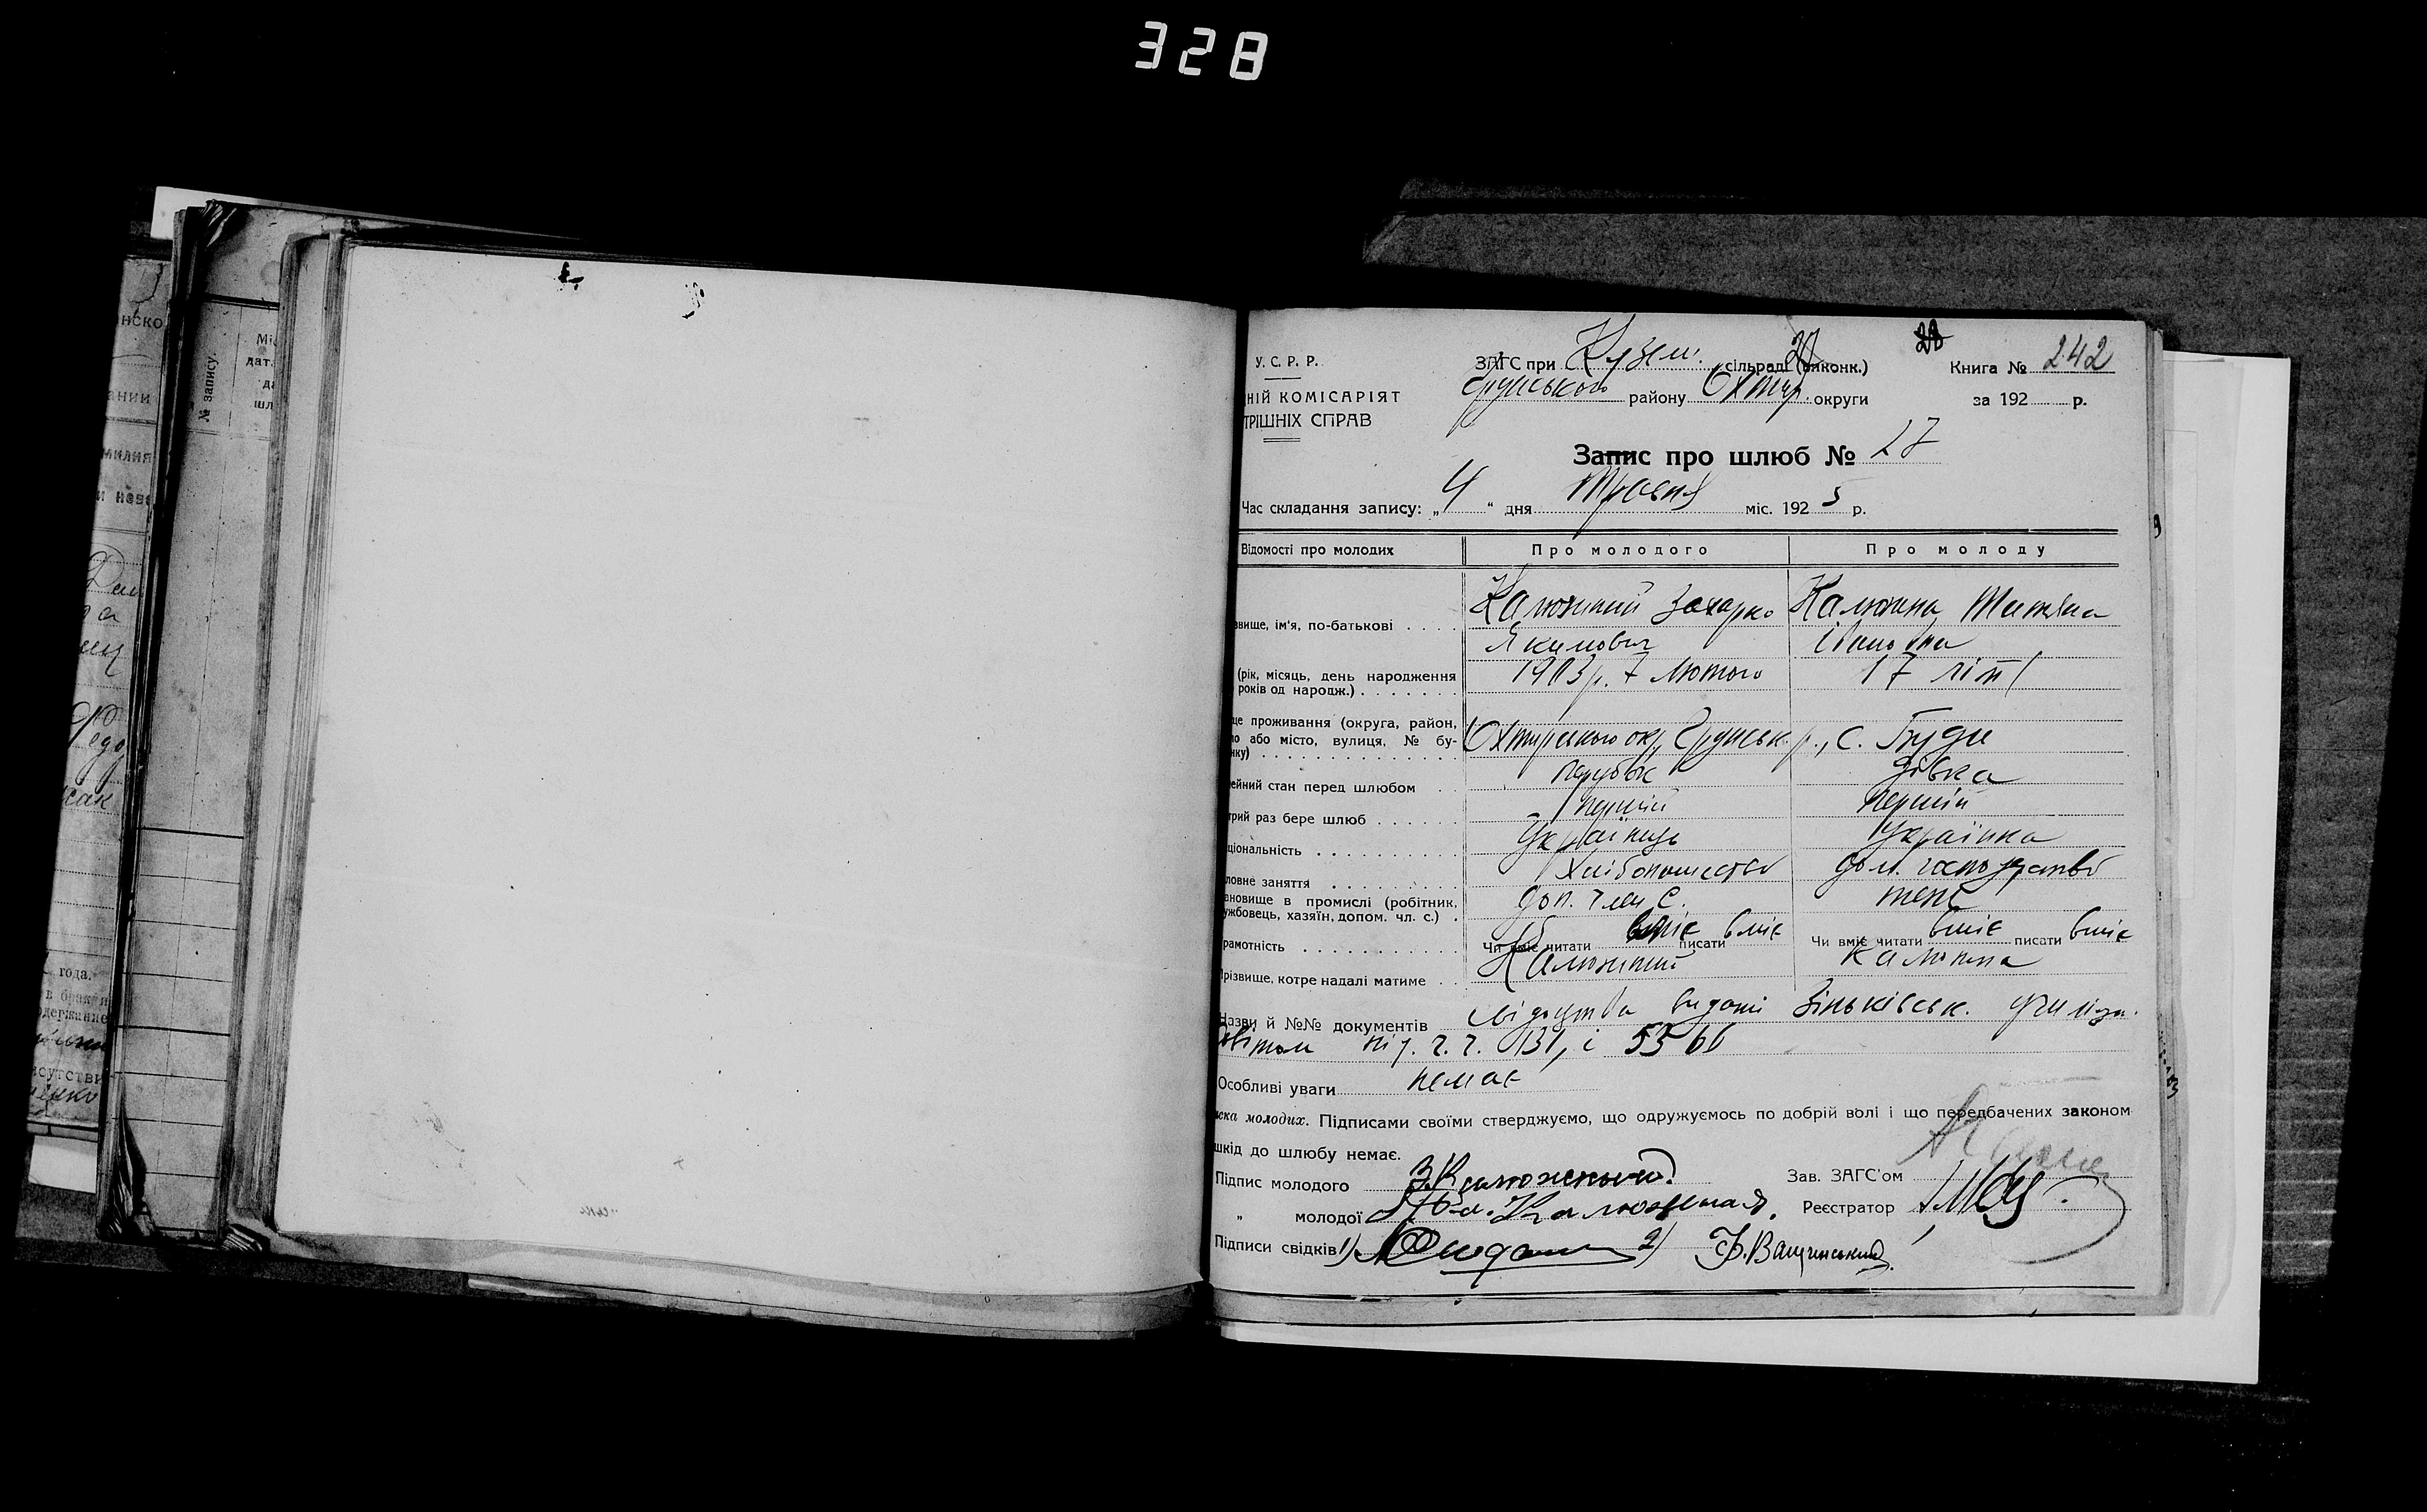 328
У. С. Р. Р.
ЗАГС при Кузем. сільраді (виконк.)
Книга № 242
НІЙ КОМІСАРІЯТ
Грунського району Охтир. округи
за 192 р.
ТРІШНІХ СПРАВ
Запис про шлюб № 27
Час складання запису: „4“ дня Травня міс. 1925 р.
Відомості про молодих
Про молодого
Про молоду
звище, ім'я, по-батькові
Калюжний Захарко
Якимович
Калюжна Тетяна
Івановна
(рік, місяць, день народження
років од народж.)
1903 р. 7 Лютого
17 літ
це проживання (округа, район,
ло або місто, вулиця, № бу-
нку)
Охтирського окр, Грунськ. р., с. Буди
ейний стан перед шлюбом
парубок
дівка
трий раз бере шлюб
перший
перший
ціональність
Українець
Українка
ловне заняття
Хліборобство
дом. господарство
ановище в промислі (робітник,
ужбовець, хазяїн, допом. чл. с.)
доп. член с.
теж
рамотність
Чи вміє читати вміє писати вміє
Чи вміє читати вміє писати вміє
різвище, котре надалі матиме
Калюжний
Калюжна
Назви й №№ документів
свідоцтва видані Зіньківськ.
під. ч. ч. 131, і 5566
Особливі уваги немає
иска молодих. Підписами своїми стверджуємо, що одружуємось по добрій волі і що передбачених законом
шкід до шлюбу немає.
Підпис молодого З.Калюжный
Зав. ЗАГС'ом
„ молодої Калюжная.
Реєстратор
Підписи свідків 1)
2) Ф.Ващинський
№ запису.
нско
ании
милия
года.
в брак
держание
исутстви